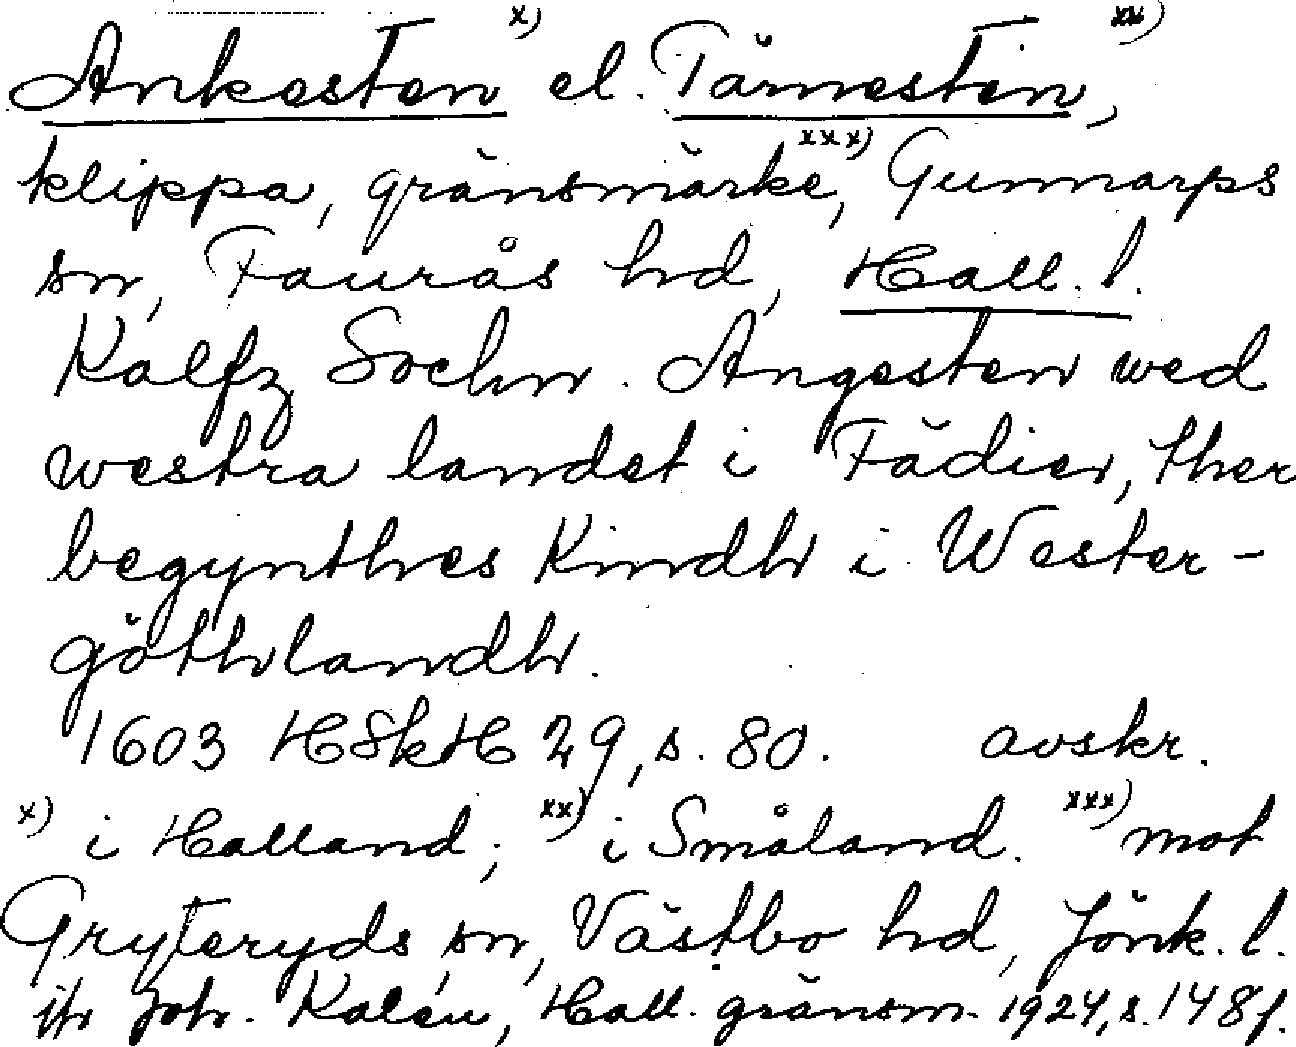 Ankesten x) el. Tärnesten xx),
klippa, gränsmärke xxx), Gunnarps
sn, Faurås hd, Hall. l.
Kalfz Sochn. Angesten wed
westra landet i Fädier, ther
begynthes Kindh i Wester-
göthlandh.
1603 HSkH 29, s. 80. avskr.
x) i Halland; xx) i Småland. xxx) mot
Gryteryds sn, Västbo hd, Jönk. l.
jfr Joh. Kalén, Hall. gränsm. 1924, s. 148 f.